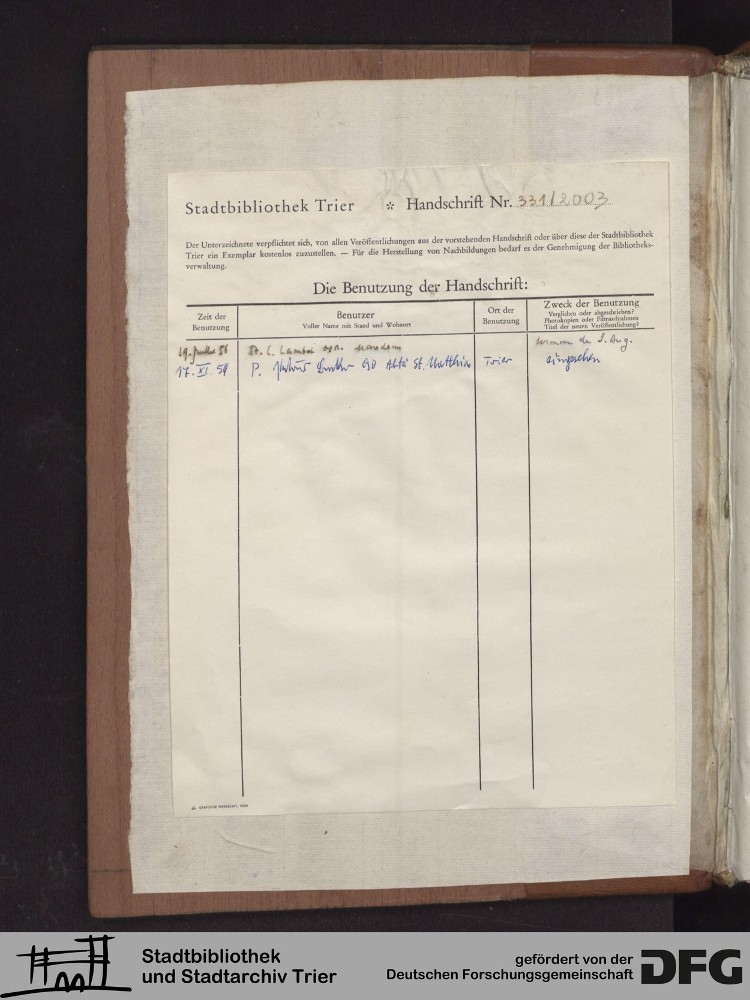 Stadtbibliothek Trier * Handschrift Nr. 331/2003
Der Unterzeichnete verpflichtet sich, von allen Veröffentlichungen aus der vorstehenden Handschrift oder über diese der Stadtbibliothek
Trier ein Exemplar kostenlos zuzustellen. — Für die Herstellung von Nachbildungen bedarf es der Genehmigung der Bibliotheks-
verwaltung.
Die Benutzung der Handschrift:
Zeit der
Benutzung
Benutzer
Voller Name mit Stand und Wohnort
Ort der
Benutzung
Zweck der Benutzung
Verglichen oder abgeschrieben?
Photokopien oder Filmaufnahmen
Titel der neuen Veröffentlichung?
19. 56 St. C. Lambot sermon de S. Aug.
17. XI. P. Abtei St. Matthias Trier eingesehen
GRAFISCHE WERKSTATT, TRIER
Stadtbibliothek
und Stadtarchiv Trier
gefördert von der
Deutschen Forschungsgemeinschaft
DFG